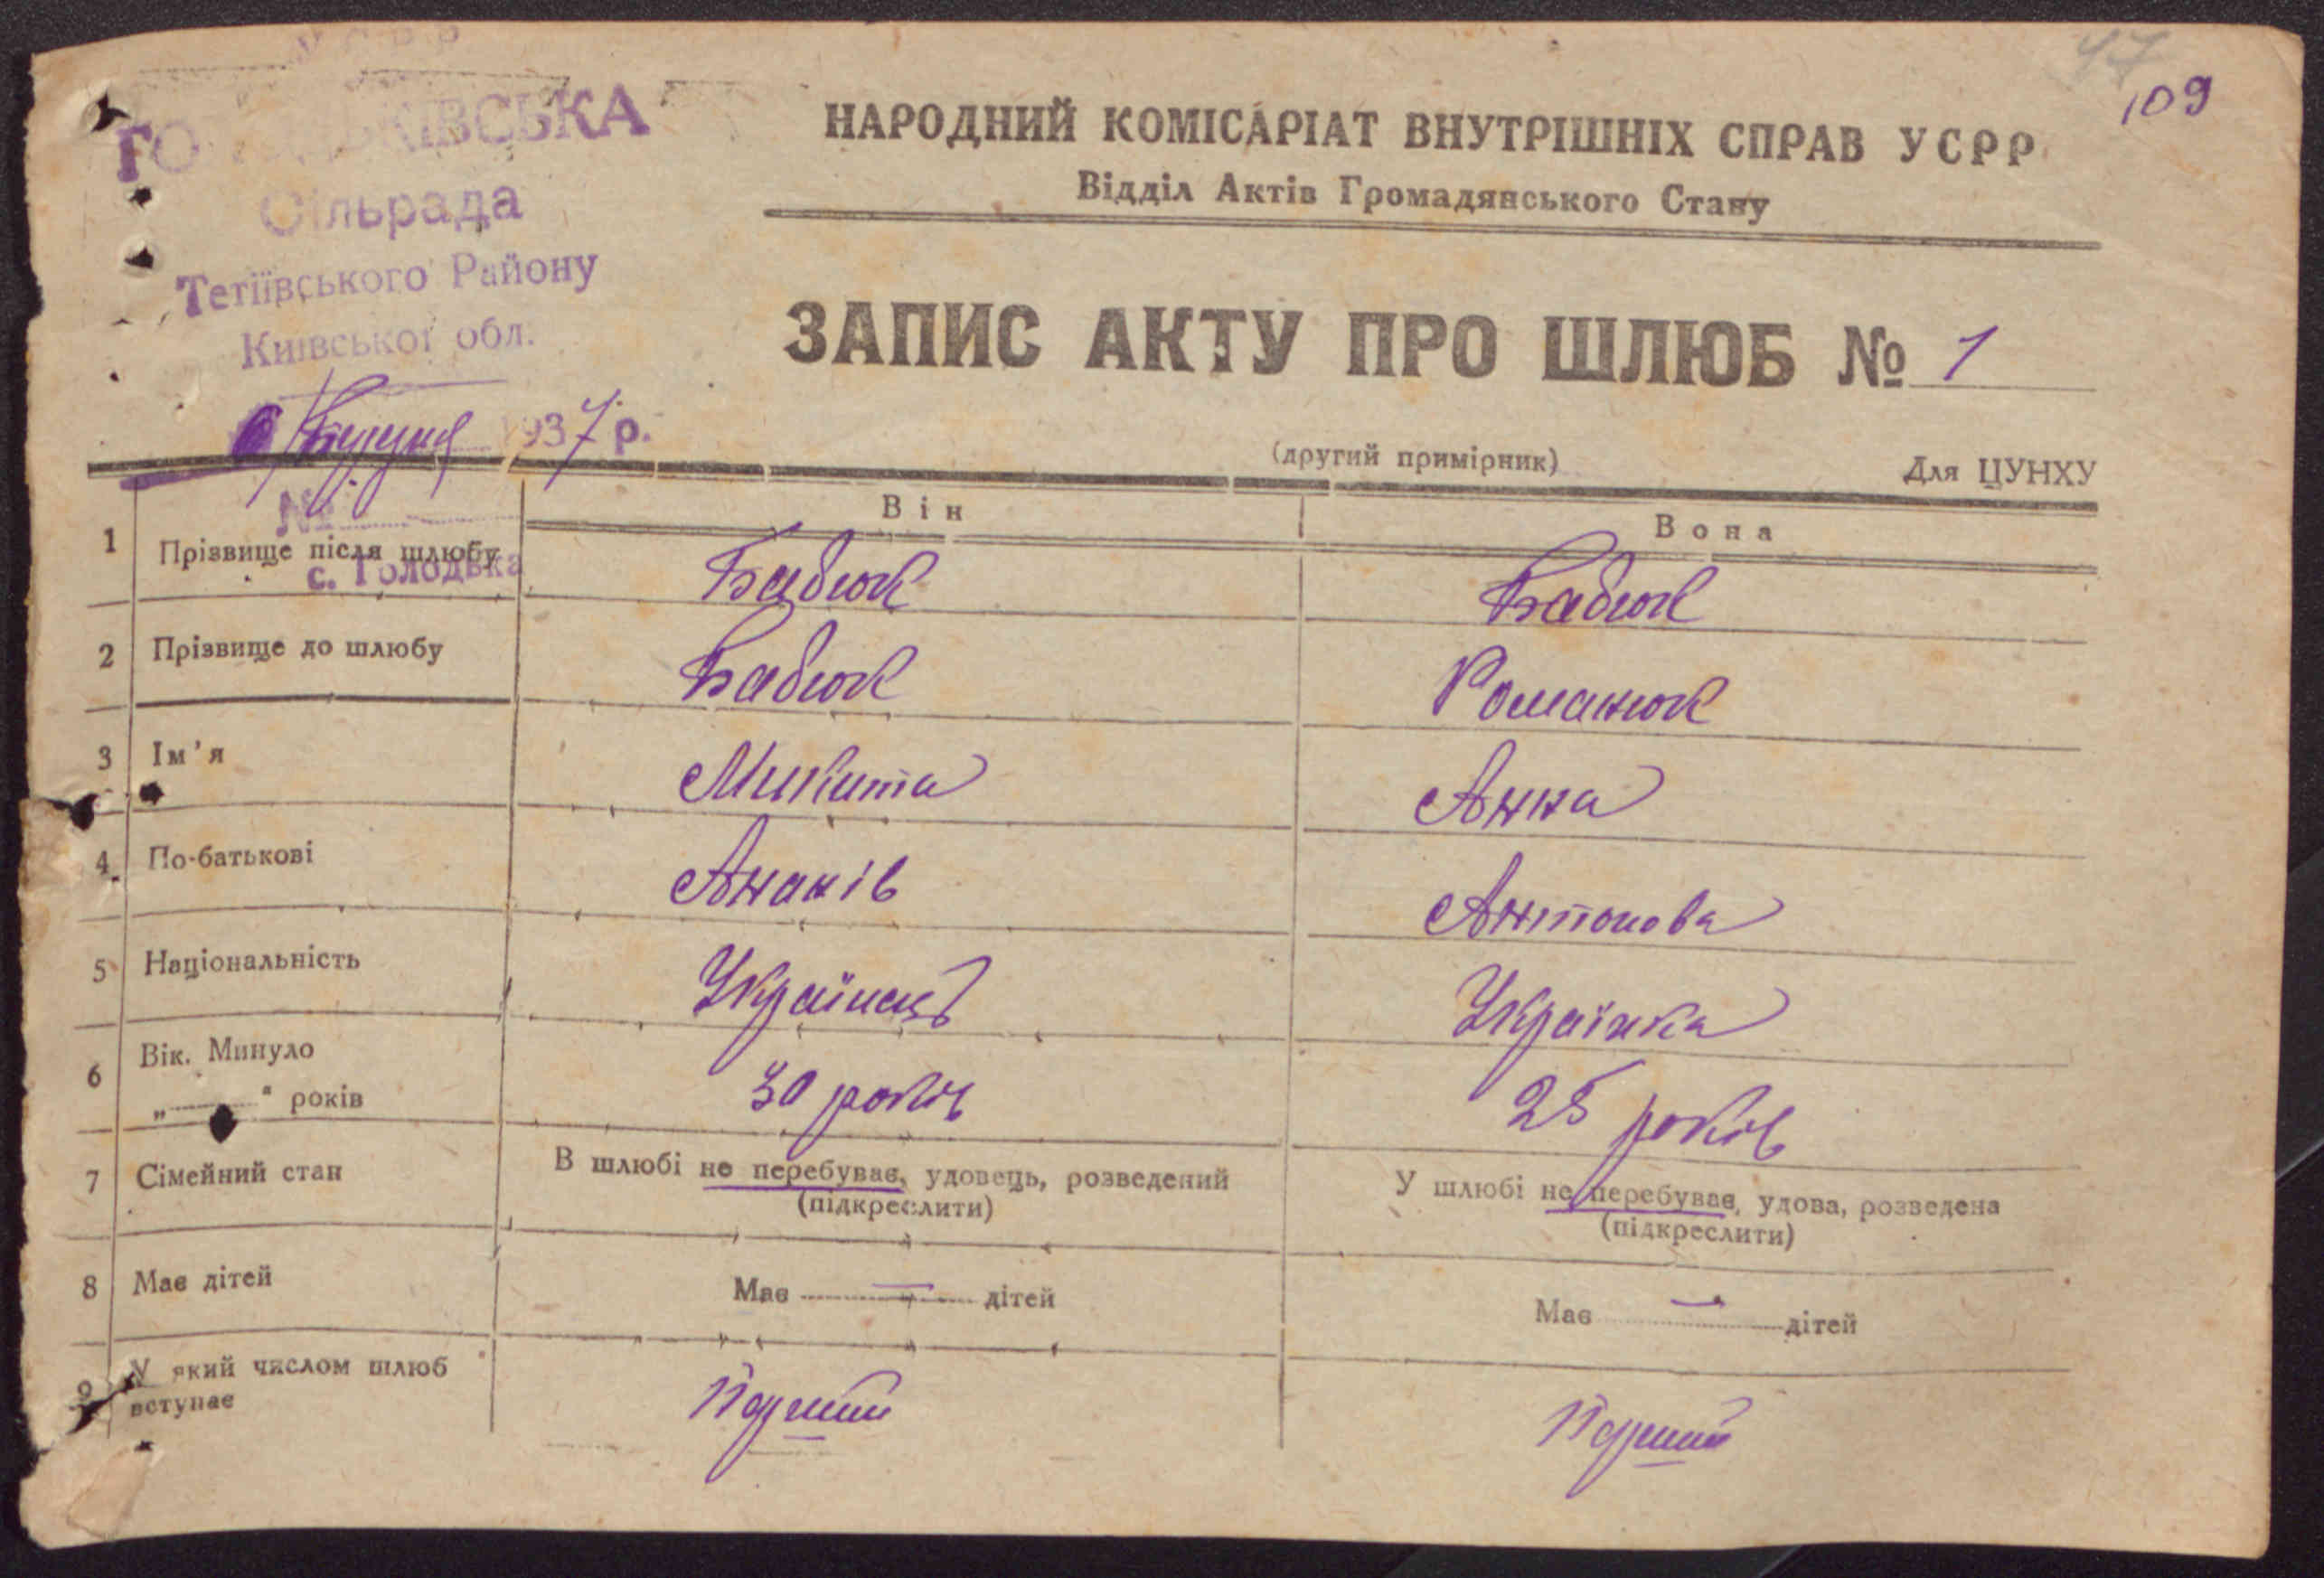 47
109
УСРР
ГОЛОДЬКІВСЬКА
Сільрада
Тетіївського Району
Київської обл.
6 / Грудня 1937 р.
№
с. Голодька
НАРОДНИЙ КОМІСАРІАТ ВНУТРІШНІХ СПРАВ УСРР
Відділ Актів Громадянського Стану
ЗАПИС АКТУ ПРО ШЛЮБ № 1
(другий примірник)
Для ЦУНХУ
Він Вона
1 Прізвище після шлюбу Бабюк Бабюк
2 Прізвище до шлюбу Бабюк Романюк
3 Ім'я Микита Анна
4 По-батькові Ананів Антонова
5 Національність Українець Українка
6 Вік. Минуло
„ “ років 30 років 25 років
7 Сімейний стан В шлюбі не перебуває, удовець, розведений У шлюбі не перебуває, удова, розведена
(підкреслити) (підкреслити)
8 Має дітей Має — дітей Має — дітей
9 У який числом шлюб
вступає Перший Перший